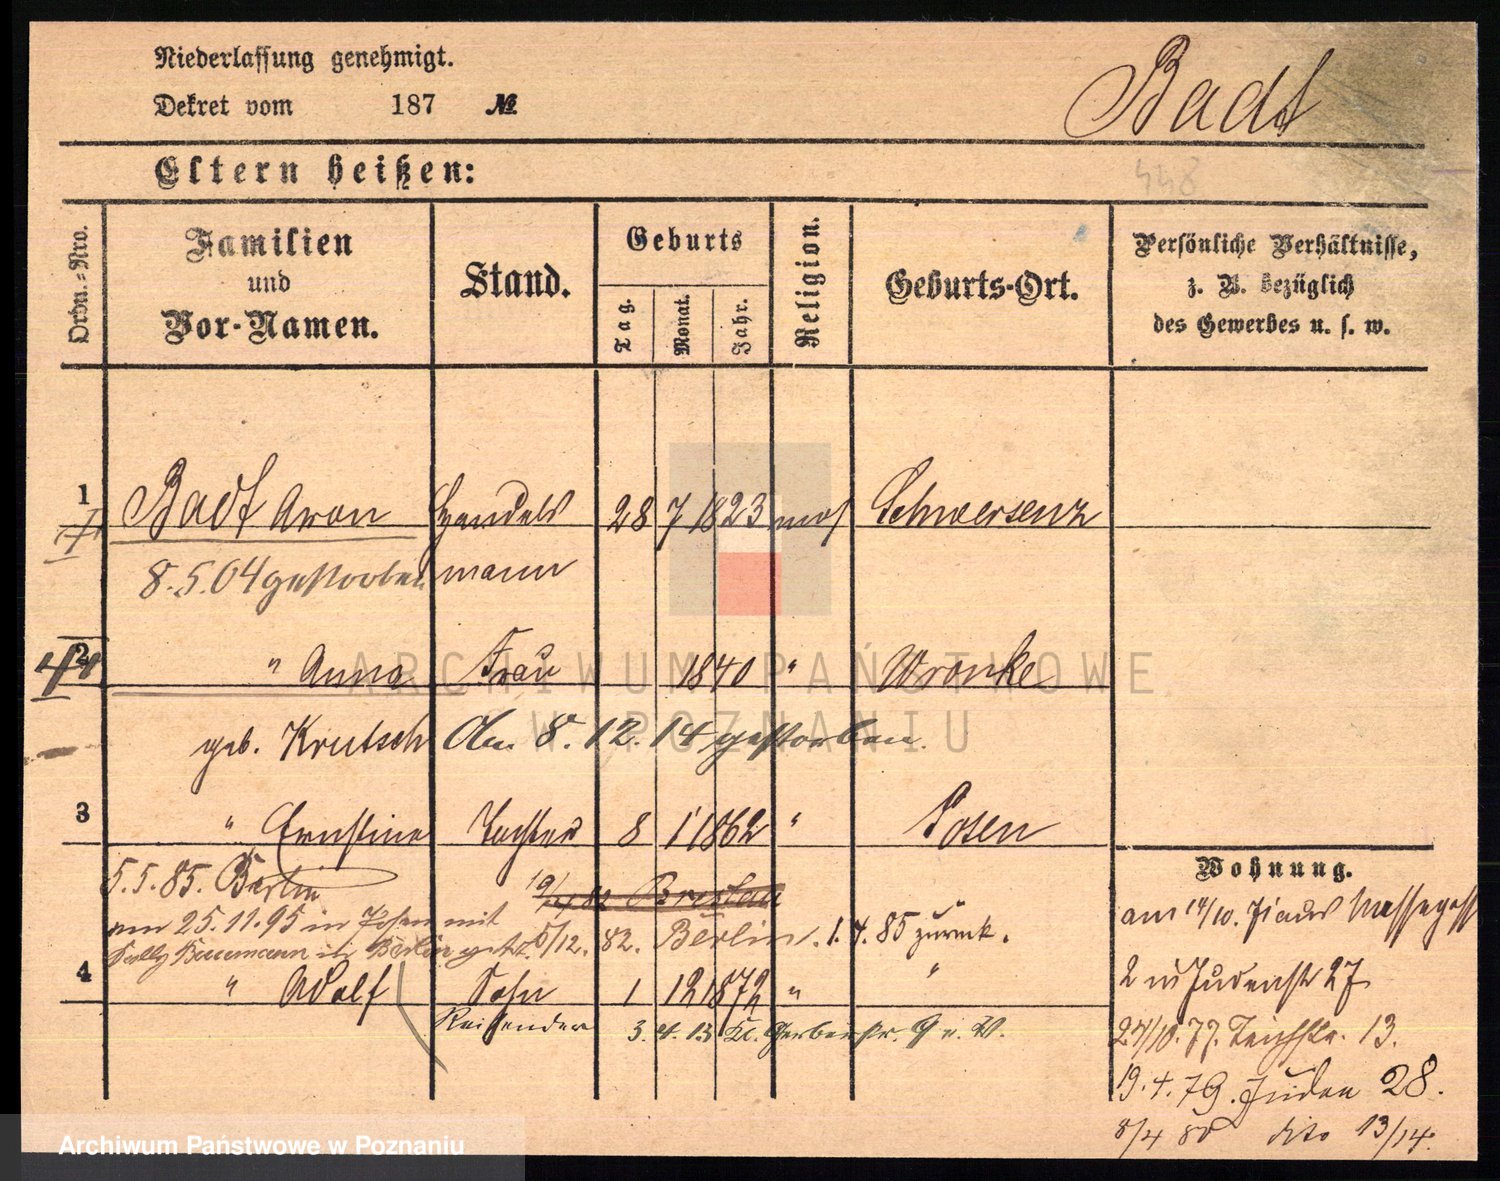 Niederlassung genehmigt.
Dekret vom 187 №
Badt
448
Eltern heißen:
Ordn.-Nro.
Familien und Vor-Namen.
Stand.
Geburts
Tag.
Monat.
Jahr.
Religion.
Geburts-Ort.
Persönliche Verhältnisse,
z. B. bezüglich
des Gewerbes u. s. w.
1 Badt Aron Handels 28 7 1823 mos Schwersenz
8.5.04 gestorben mann
2 " Anna Frau 1840 " Wronke
geb. Krutsch Am 8.12.14 gestorben.
3 " Ernstine Tochter 8 1 1862 " Posen
5.5.85. Berlin 19/4 82 Breslau
am 25.11.95 in Posen mit
Sally Baumann in Berlin 5/12. 82. Berlin. 1.4.85 zurück.
4 " Adolf Sohn 1 12 1872 " "
Reisender 3. 4. 13 Kl. Gerberstr. 9 v. W.
Wohnung.
am 14/10. 71 aus Wassergass
2 in Judenstr 27
24/10. 77. Teichstr. 13.
19.4.79. Juden 28.
8/4 80 dito 13/14.
ARCHIWUM PAŃSTWOWE
W POZNANIU
Archiwum Państwowe w Poznaniu